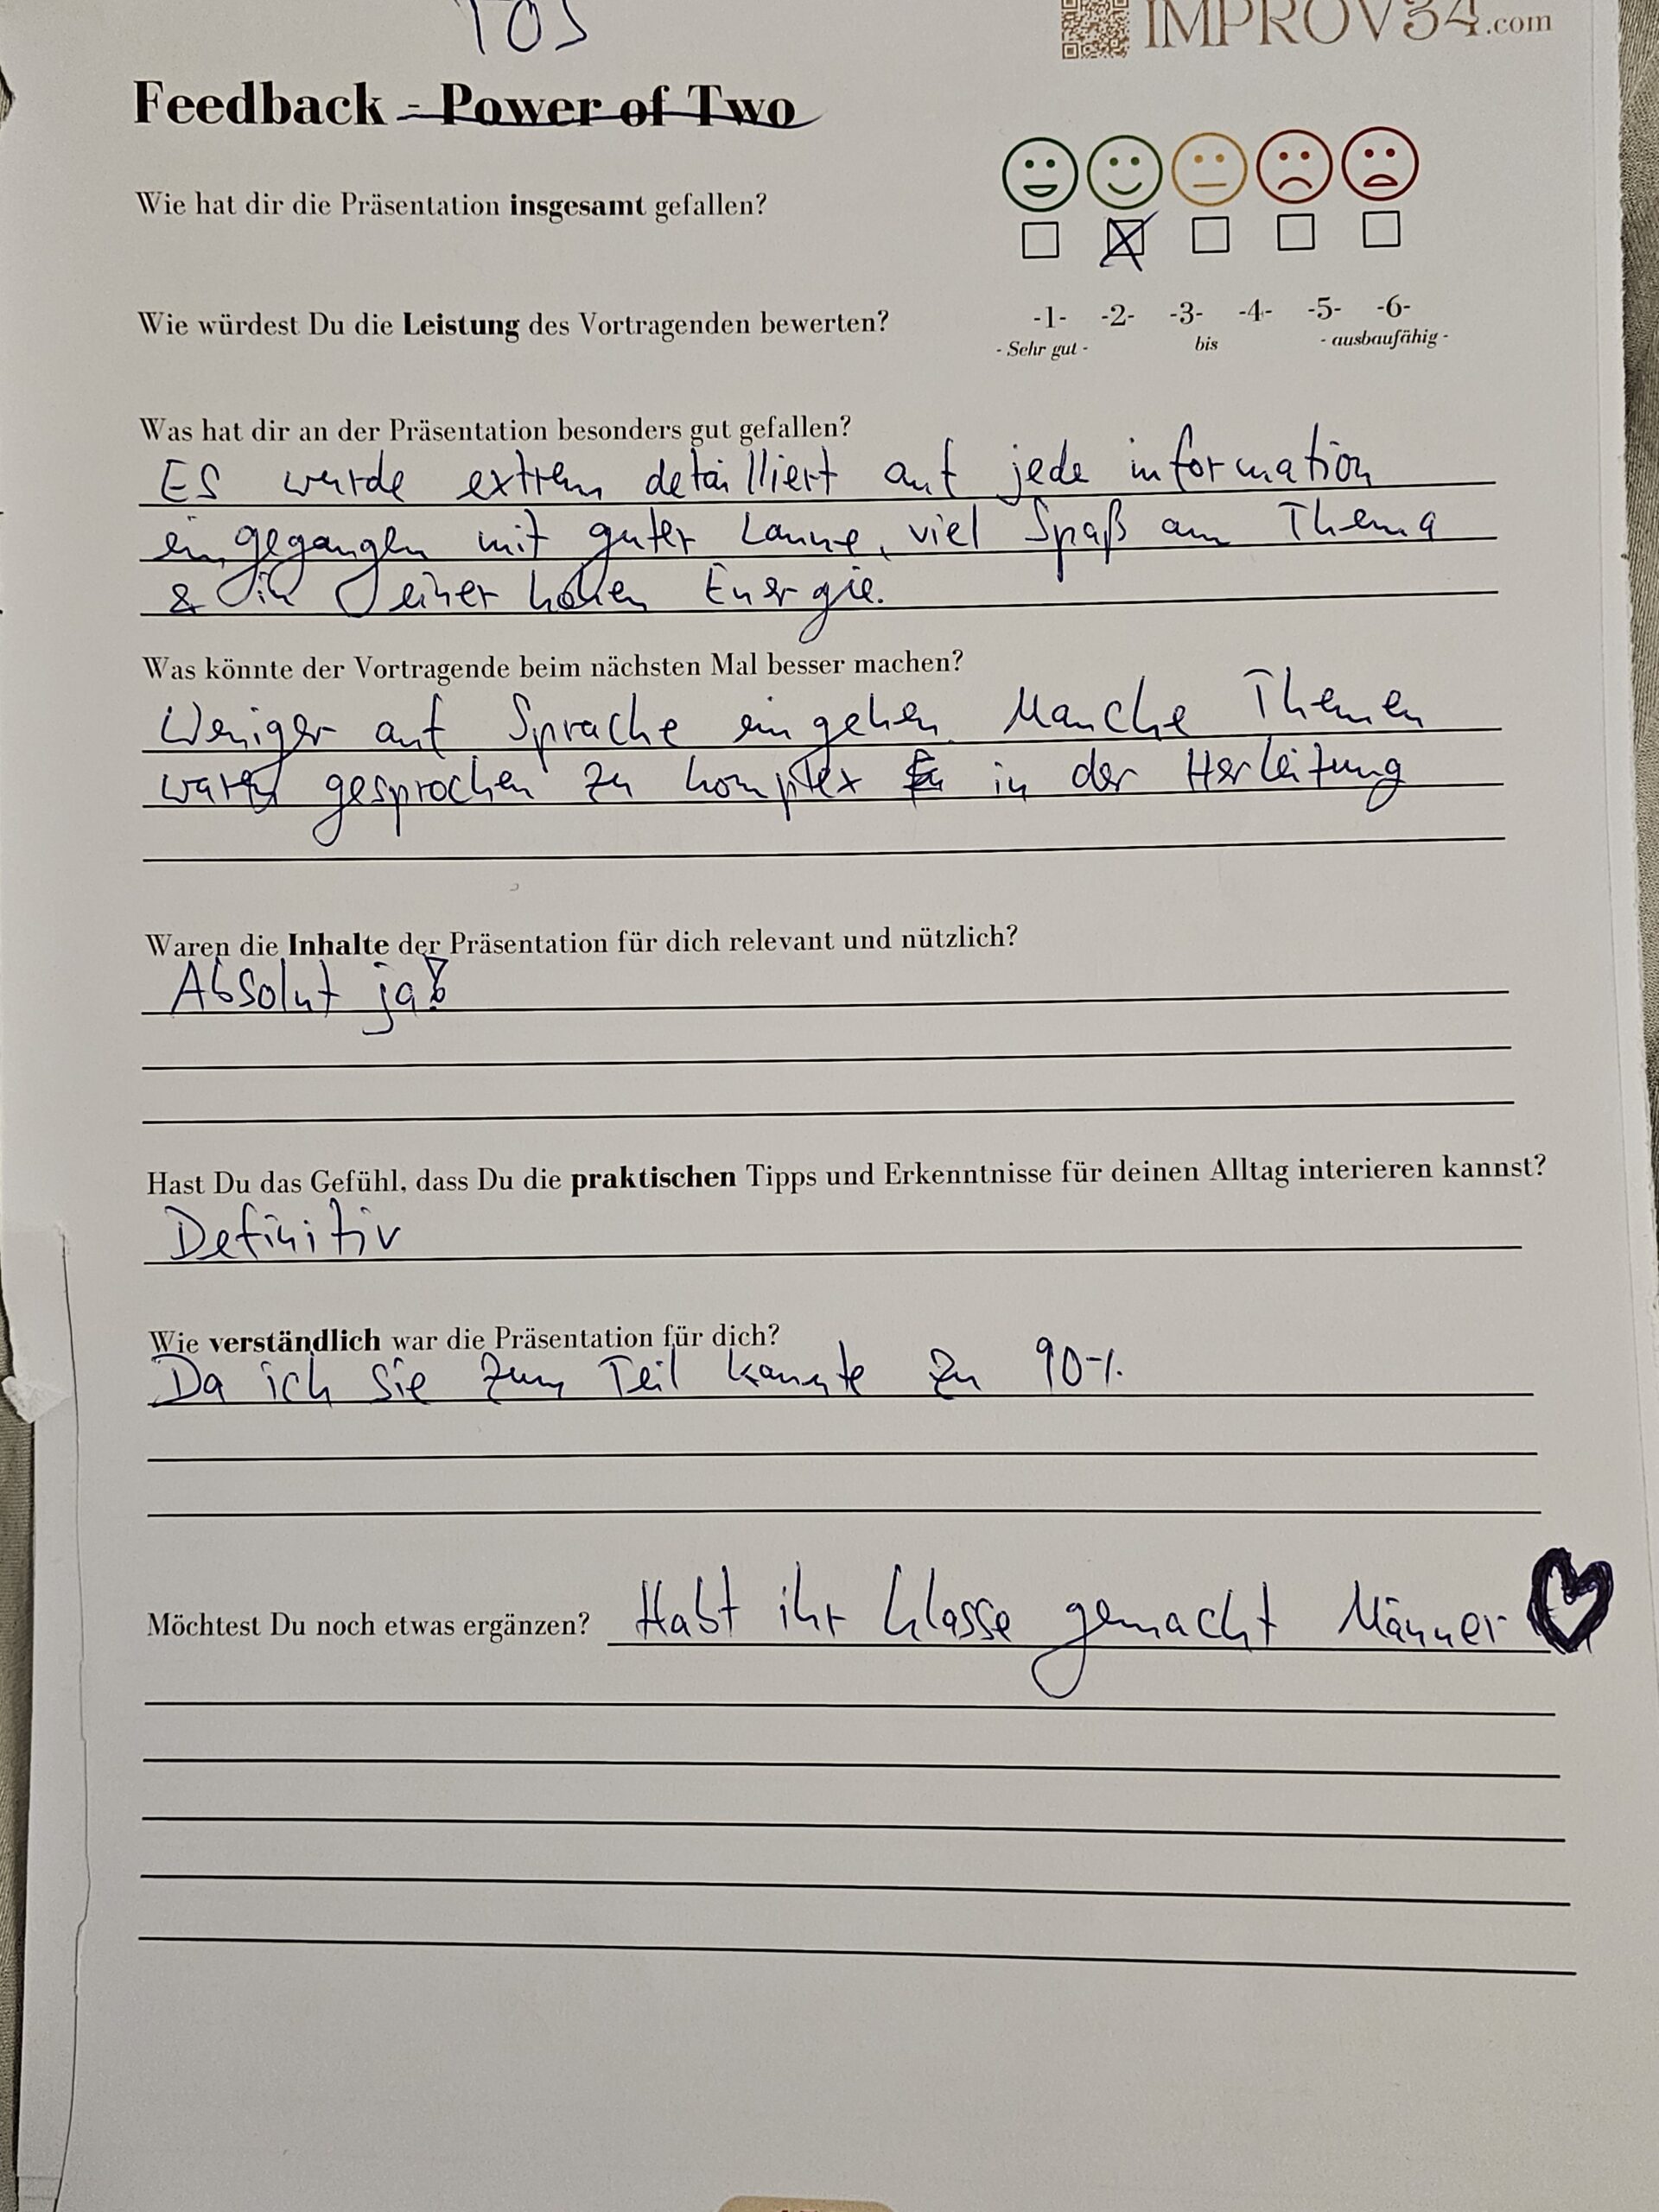 IMPROV34.com
Feedback - Power of Two
Wie hat dir die Präsentation insgesamt gefallen?
Wie würdest Du die Leistung des Vortragenden bewerten?
-1- -2- -3- -4- -5- -6-
- Sehr gut - bis - ausbaufähig -
Was hat dir an der Präsentation besonders gut gefallen?
Es wurde extrem detailliert auf jede information
eingegangen mit guter Laune, viel Spaß am Thema
& in einer hohen Energie.
Was könnte der Vortragende beim nächsten Mal besser machen?
Weniger auf Sprache eingehen. Manche Themen
waren gesprochen zu komplex in der Herleitung
Waren die Inhalte der Präsentation für dich relevant und nützlich?
Absolut ja!
Hast Du das Gefühl, dass Du die praktischen Tipps und Erkenntnisse für deinen Alltag interieren kannst?
Definitiv
Wie verständlich war die Präsentation für dich?
Da ich sie zum Teil kannte zu 90%
Möchtest Du noch etwas ergänzen? Habt ihr klasse gemacht Männer